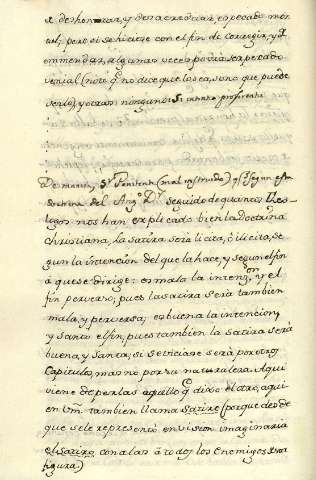 a deshonrrar, y desacreditar, es pecado mor
tal; pero si se hiciere con el fin de corregir, y
enmendar, algunas veces podrìa ser pecado
venial (note q̃ no dice que los ea, sino que puede
serlo) y otras ninguno. Si intenta
De manera, Sr Penitente (mal instruido) q̃ segun esta
doctrina del Ang. Dr seguido de quantos Theo-
logos nos han explicado bien la doctrina
christiana, La satira serà licita, ò ilicita, se
gun la intencion del que la hace, y segun el fin
à que se dirige: es mala la intenzon, y el
fin perverso, pues la satira serà tambien
mala, y perversa; es buena la intencion,
y santo el fin, pues tambien la satira serà
buena, y santa; si se viciare serà por otros
Capitulos, mas no por su naturaleza. Aqui
viene de perlas aquello q̃ dixo el otro, a quien
en Vm. tambien llama Satiro (porque desde
que se le representò en vision imaginaria
el satiro con alas à todos los Enemigos
figura.)